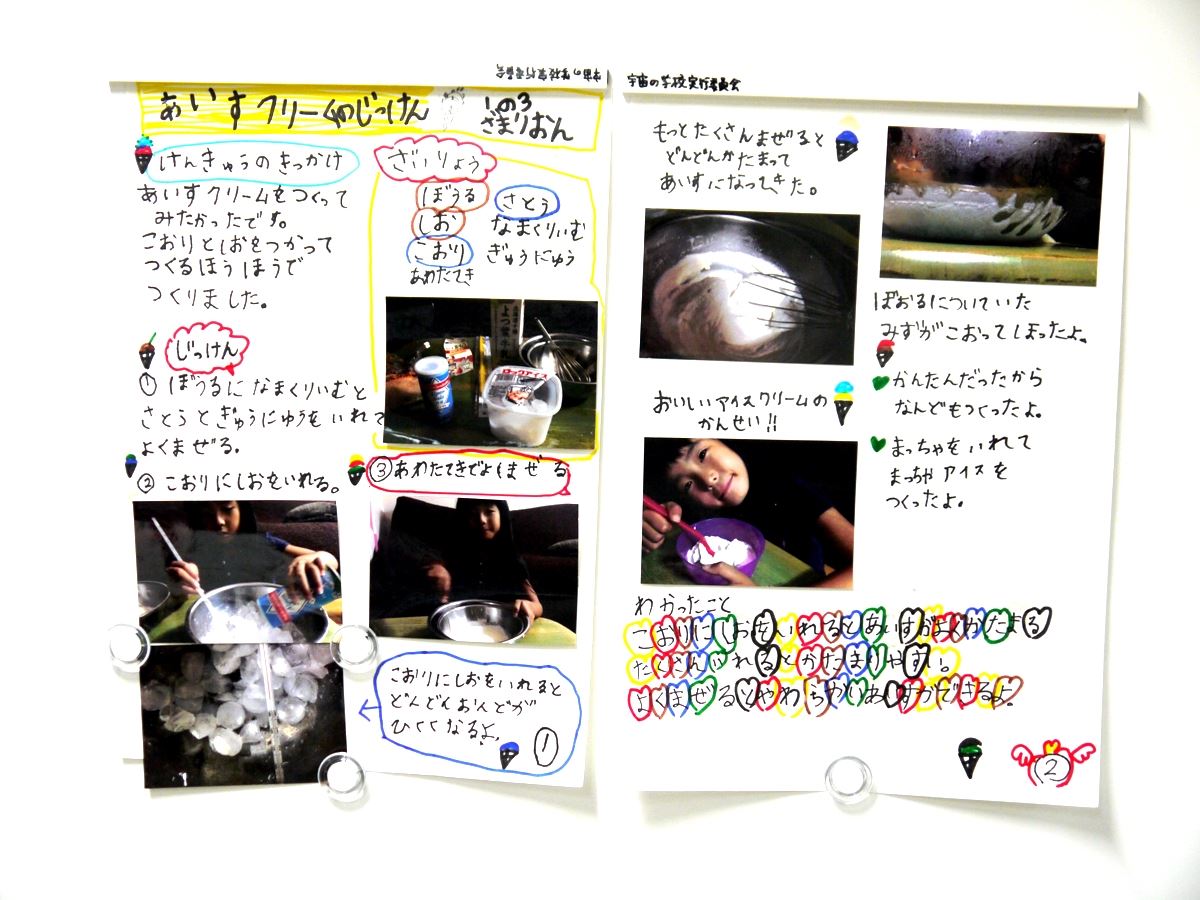 宇宙の学校実行委員会
あいすクリームのじっけん
1の3
ざまりおん
けんきゅうのきっかけ
あいすクリームをつくって
みたかったです。
こおりとしおをつかって
つくるほうほうで
つくりました。
ざいりょう
ぼうる
しお
こおり
あわたてき
さとう
なまくりいむ
ぎゅうにゅう
ロックアイス
じっけん
① ぼうるになまくりいむと
さとうとぎゅうにゅうをいれて
よくまぜる。
② こおりにしおをいれる。
③あわたてきでよくまぜる
こおりにしおをいれると
どんどんおんどが
ひくくなるよ。
1
宇宙の学校実行委員会
もっとたくさんまぜると
どんどんかたまって
あいすになってきた。
ぼおるについていた
みずがこおってしまったよ。
おいしいアイスクリームの
かんせい!!
かんたんだったから
なんどもつくったよ。
まっちゃをいれて
まっちゃアイスを
つくったよ。
わかったこと
こおりにしおをいれるとあいすがよくかたまる
たくさんいれるとかたまりやすい。
よくまぜるとやわらかいあいすができるよ。
2